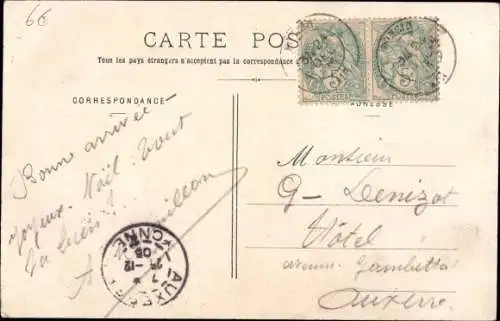 66
CARTE POS
Tous les pays étrangers n'acceptent pas la correspondance
CORRESPONDANCE
ADRESSE
Bonne arrivée
Joyeux Noël. Tout
va bien!
Monsieur
G- Denizot
Hôtel
avenue Gambetta
Auxerre
AUXERRE
YONNE
7
25-12
05